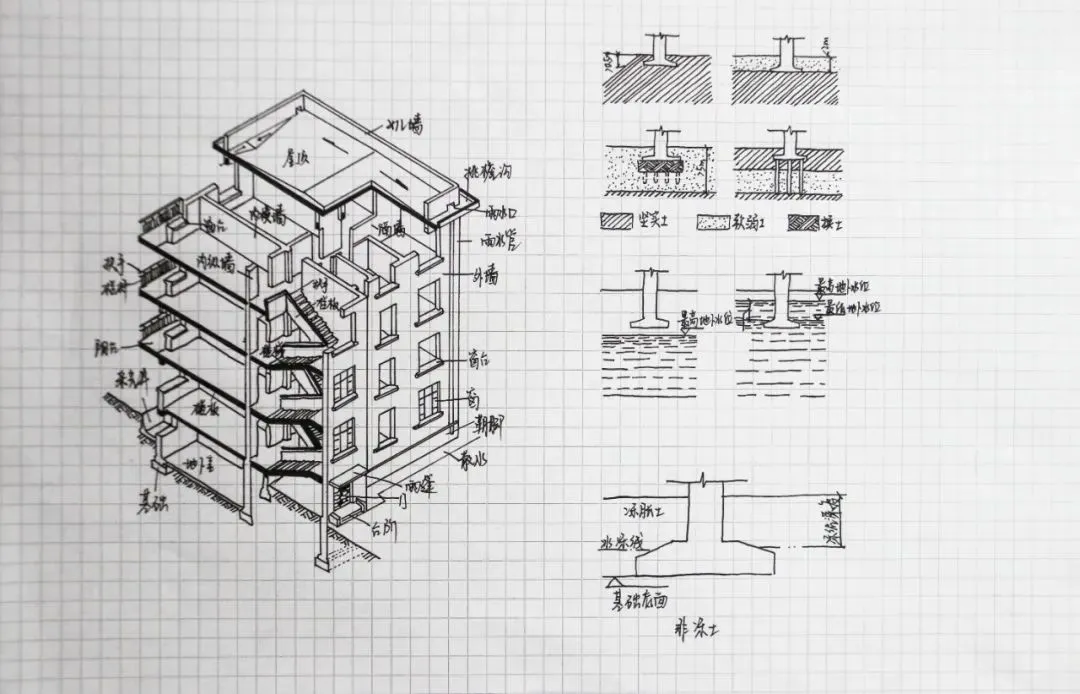 女儿墙
屋顶
挑檐沟
雨水口
雨水管
外墙
内横墙
隔墙
内纵墙
扶手
栏杆
阳台
楼板
采光井
地下室
基础
窗台
窗
散水
雨篷
门
台阶
坚实土
软弱土
换土
最高地下水位
最高地下水位
最低地下水位
冻胀土
冰冻线
冻结深度
基础底面
非冻土